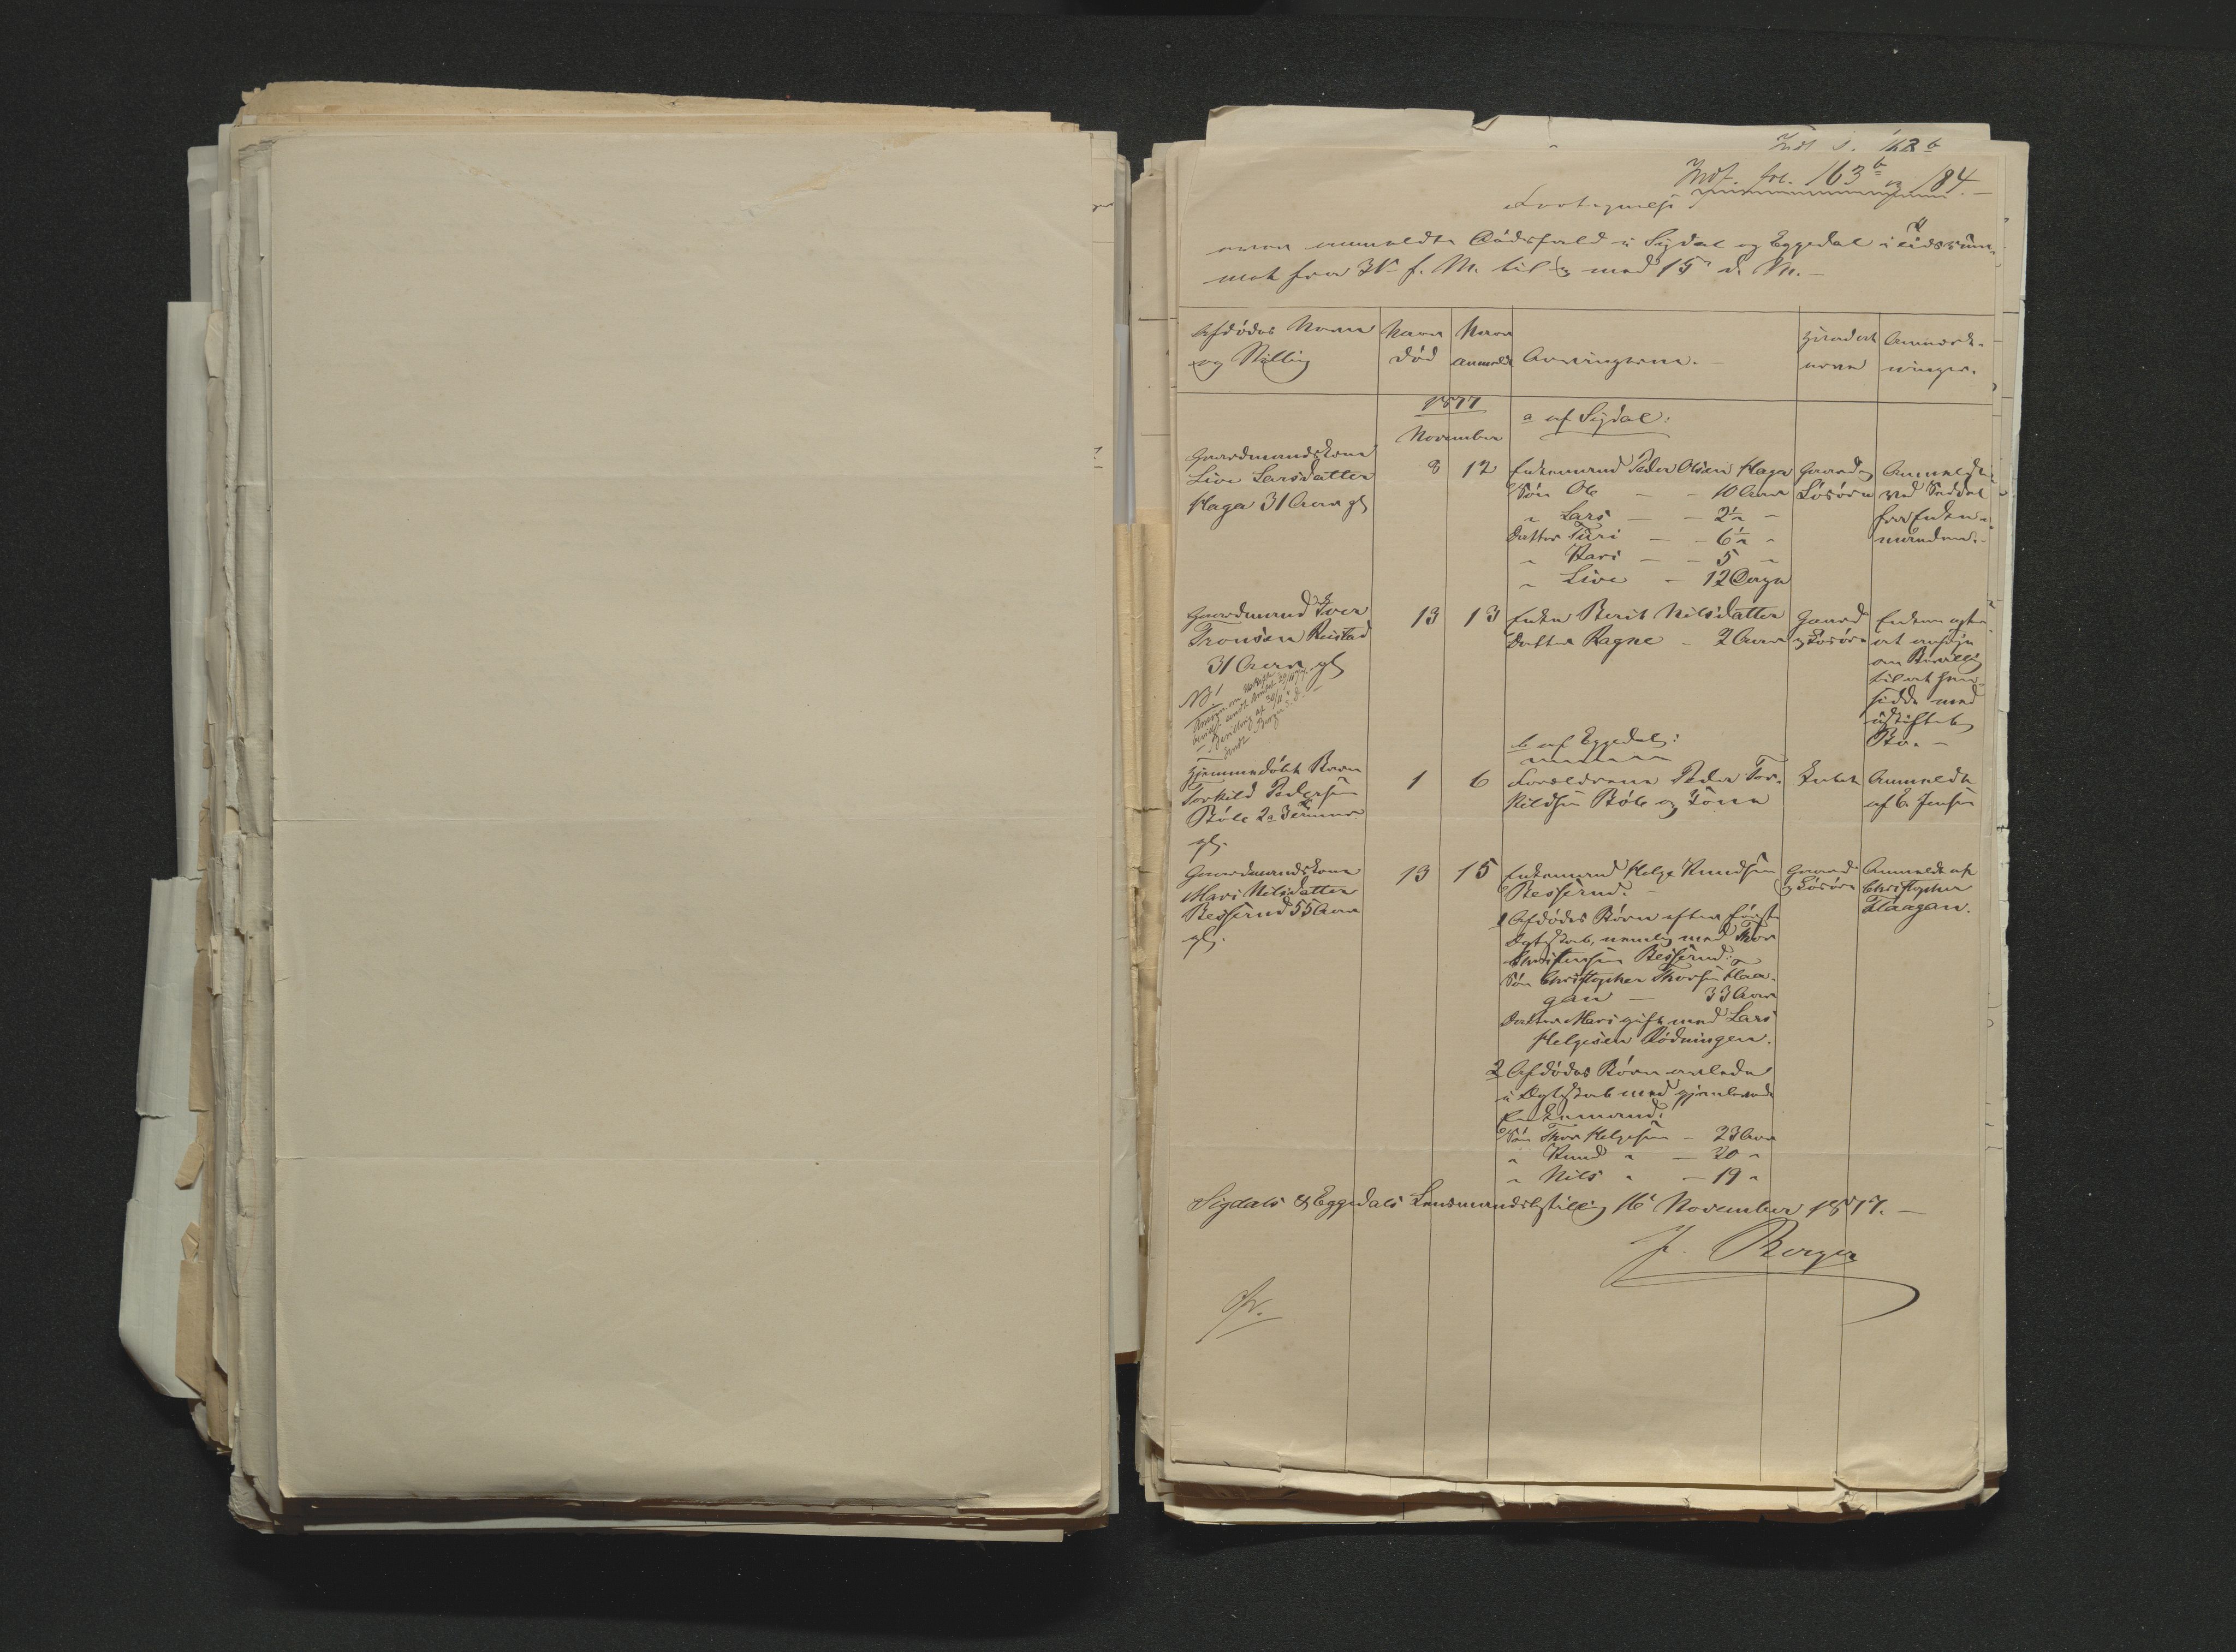 Indf. fol. 163 b og 184.
Fortegnelse
over anmeldte Dødsfald i Sigdal og Eggedal i Tidsrum-
met fra 31 f. M. til og med 15 d. M. -
Afdødes Navn
og Stilling
Naar
død
Naar
anmeldt
Arvingerne. -
Hvad at
arve
Anmærk-
ninger.
1877
November
a af Sigdal:
Gaardmandskone
Live Larsdatter
Haga 31 Aar gl
8
12
Enkemand Peder Olsen Haga
Søn Ole - - 10 Aar
" Lars - - 2½ "
Datter Turi - - 6½ "
" Kari - - 5 "
" Live - 12 Dage
Gaard og
Løsøre
Anmeldt
ved Seddel
fra Enke-
manden.
Gaardmand Iver
Tronsen Rustad
31 Aar gl
13
13
Enke Berit Nilsdatter
Datter Ragne - 2 Aar
Gaard
og Løsøre
Enken agter
at ansøge
om Bevilling
til at hen-
sidde med
uskiftet
Bo. -
NB!
b af Eggedal:
Hjemmedøbt Barn
Torkild Pedersen
Bøle 2 a 3 Timer
gl.
1
6
Forældrene Peder Tor-
kildsen Bøle og Kone
Intet
Anmeldt
af E. Jensen
Gaardmandskone
Mari Nilsdatter
Besserud 55 Aar
gl.
13
15
Enkemand Helge Knudsen
Besserud. -
1 Afdødes Børn efter første
Ægteskab, nemlig med Thor
Christensen Besserud:
Søn Christopher Thorsen Flaa-
gan - 33 Aar
Datter Mari gift med Lars
Helgesen Rødningen.
2 Afdødes Børn avlede
i Ægteskab med gjenlevende
Enkemand:
Søn Thor Helgesen - 23 Aar
" Knud " - 20 "
" Nils " - 19 "
Gaard
og Løsøre
Anmeldt af
Christopher
Flaagan.
Sigdals & Eggedals Lensmandsbestilling 16 November 1877. -
J. Borger